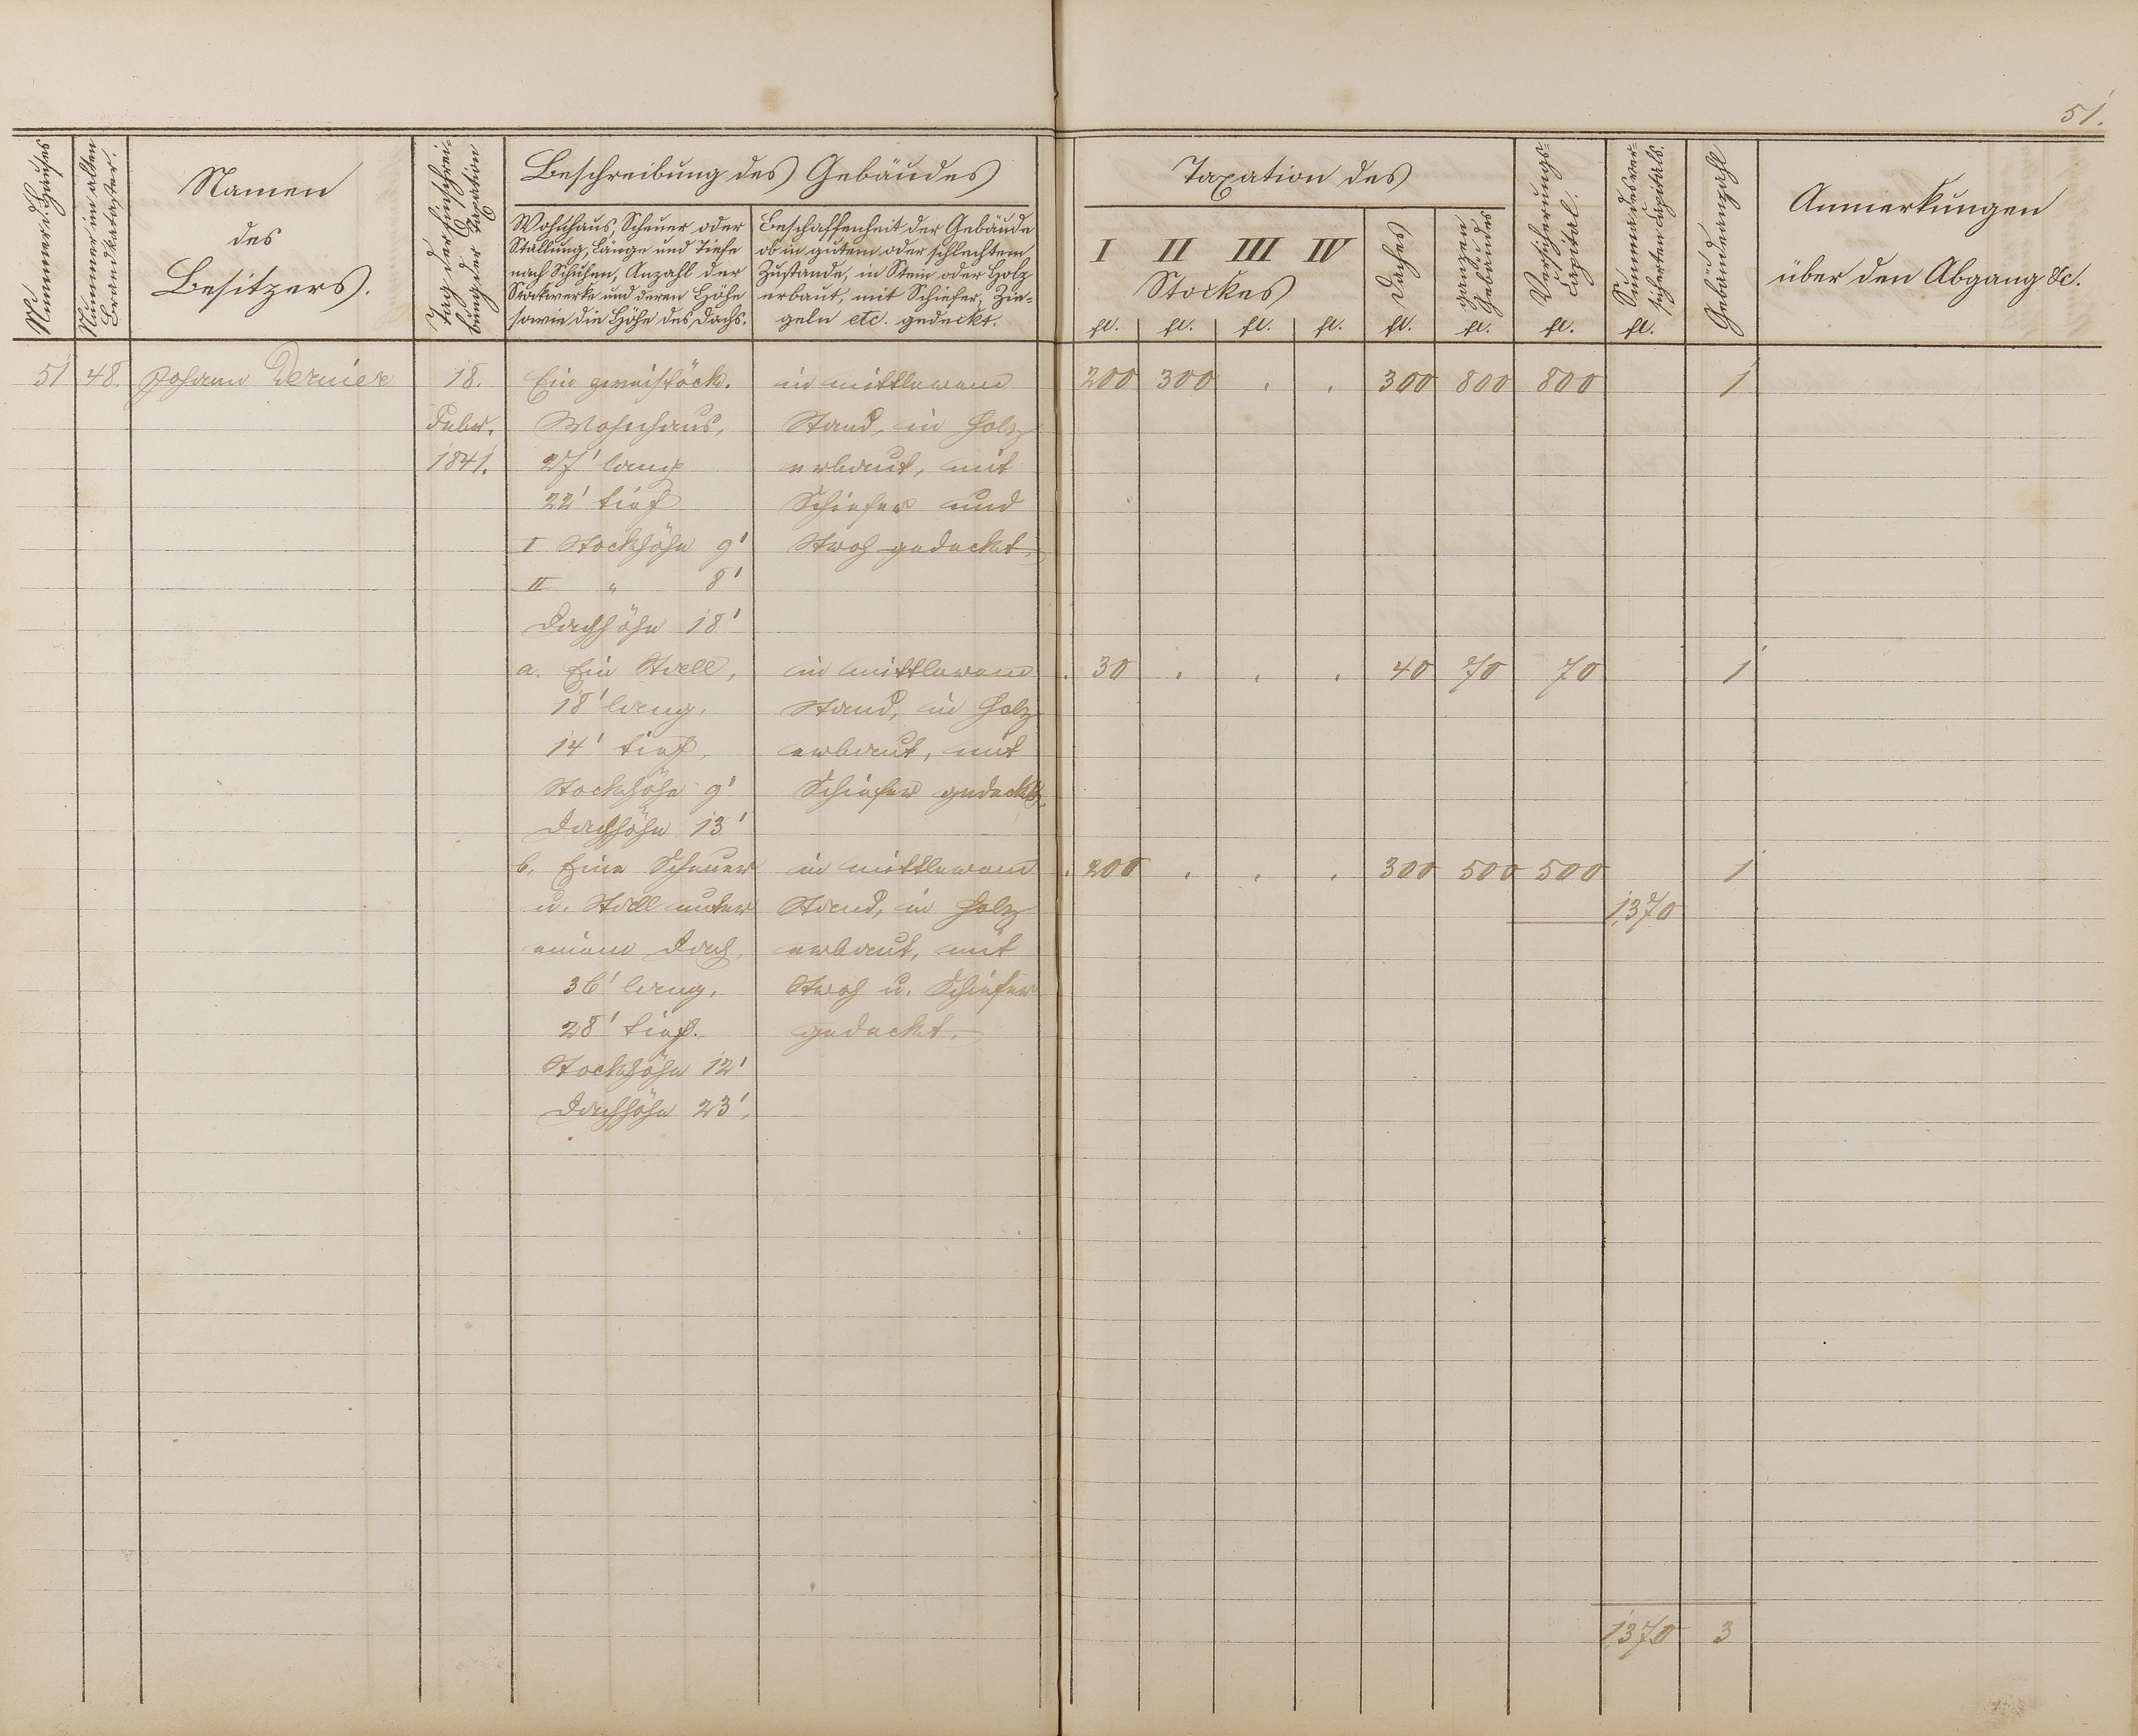 51.
Nummer d. Hauses
Nummer im alten
Brandkataster.
Namen
des
Besitzers.
Tag der Einschrei-
bung der Taxation
Beschreibung des Gebäudes
Wohnhaus, Scheuer oder
Stallung, Länge und Tiefe
nach Schuhen, Anzahl der
Stockwerke und deren Höhe
sowie die Höhe des Dachs.
Beschaffenheit der Gebäude
ob in gutem oder schlechtem
Zustande, in Stein oder Holz
erbaut, mit Schiefer, Zie-
geln etc. gedeckt.
Taxation des
I II III IV
Stockes
Daches
ganzen
Gebäudes
Versicherungs-
Capital.
Summa des ver-
sicherten Capitals.
Gebäudeanzahl
Anmerkungen
über den Abgang &c.
fl. fl. fl. fl. fl. fl. fl. fl.
51 48. Johann Dernier 18. Ein zweistöck. in mittlerem 200 300 . . 300 800 800 1
Febr. Wohnhaus, Stand, in Holz
1841. 27' lang erbaut, mit
22' tief Schiefer und
I Stockhöhe 9' Stroh gedeckt,
II " 8'
Dachhöhe 18'
a. Ein Stall, in mittlerem . 30 . . . 40 70 70 1
18' lang, Stand, in Holz
14' tief, erbaut, mit
Stockhöhe 9' Schiefer gedeckt,
Dachhöhe 13'
b. Eine Scheuer in mittlerem . 200 . . . 300 500 500 1
u. Stall unter Stand, in Holz 1,370
einem Dach, erbaut, mit
36' lang, Stroh u. Schiefer
28' tief. gedeckt.
Stockhöhe 12'
Dachhöhe 23',
1,370 3